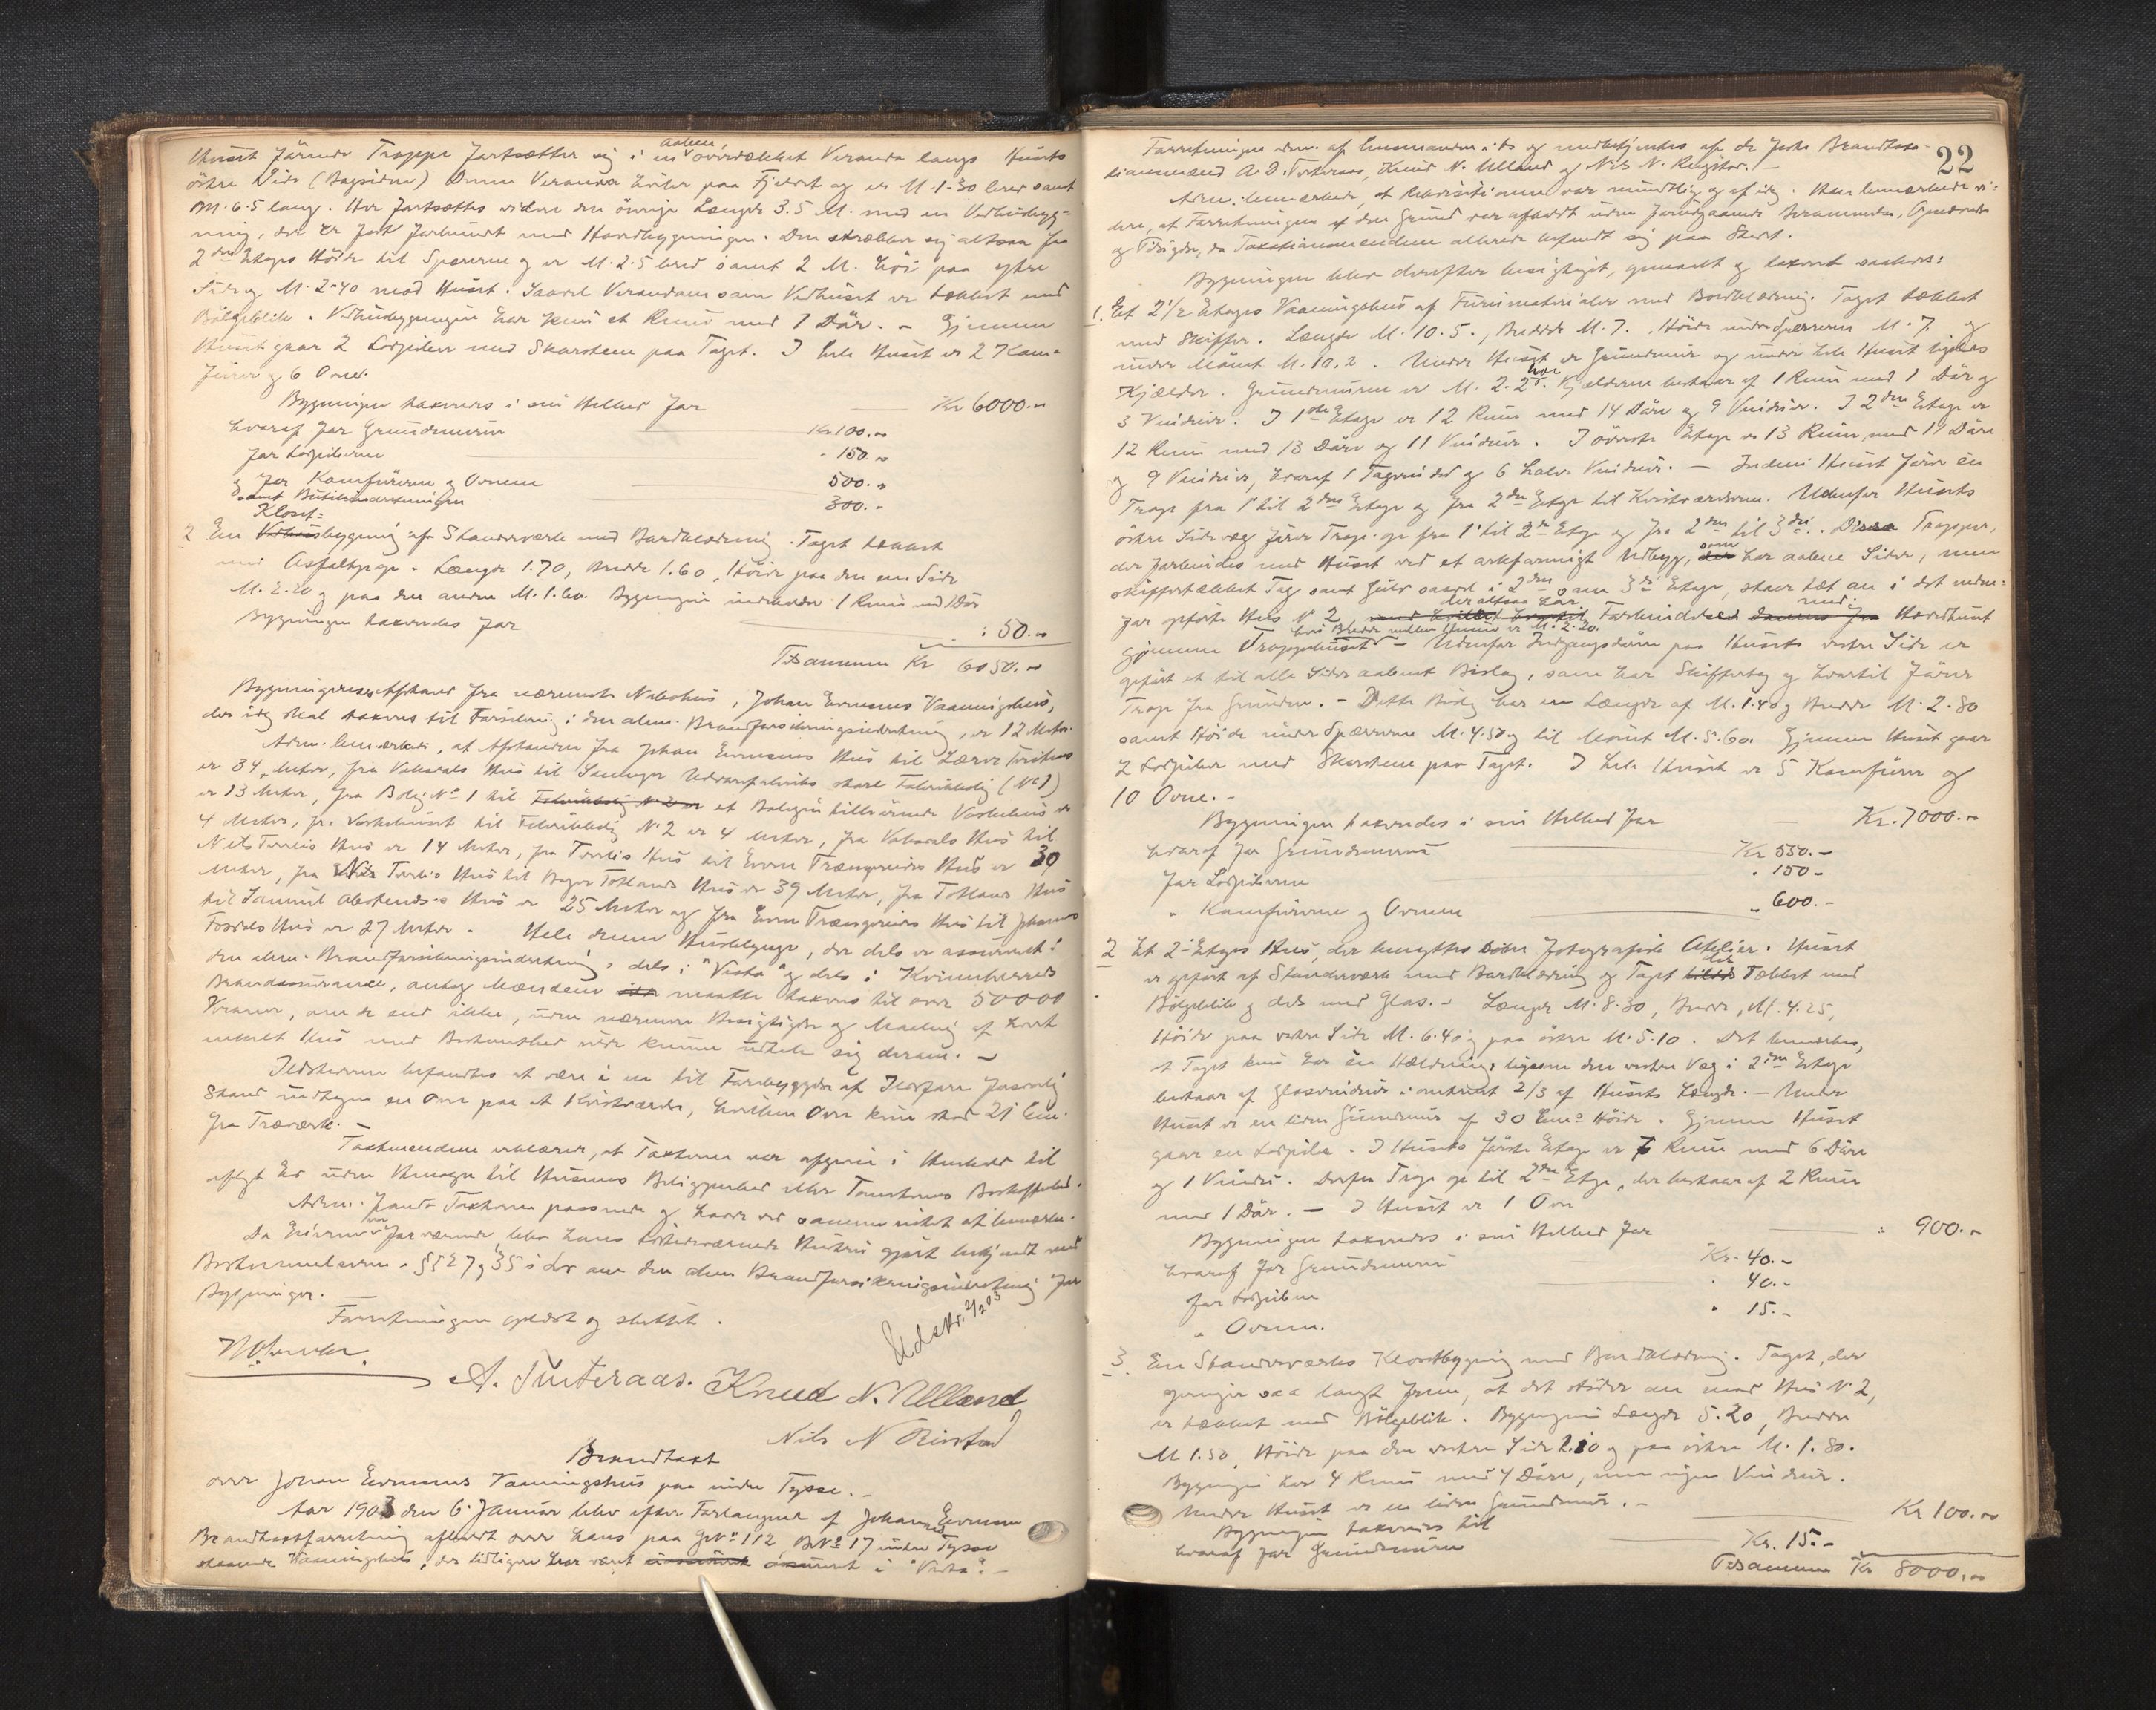 aaben
Huset förende Trappe fortsætter sig i en overdækket Veranda langs Husets
östre Side (Bagsiden) Denne Veranda hviler paa Fjeldet og er M. 1.30 bred samt
M. 6.5 lang. Her fortsættes videre den övrige Længde 3.5 M. med en Vedhusbyg-
ning, der er fast forbundet med Hovedbygningen. Den strækker sig altsaa fra
2den Etages Höide til Spærrene og er M. 2.5 bred samt 2 M. höi paa ytre
Side og M. 2.40 mod Huset. Saavel Verandaen som Vedhuset er tækket med
Bölgeblik. Vedhusbygningen har kun et Rum med 1 Dör. – Gjennem
Huset gaar 2 Lodpiber med Skorsten paa Taget. I hele Huset er 2 Kom-
furer og 6 Ovne.
Bygningen taxeredes i sin Helhed for — Kr 6000.00
hvoraf for Grundmuren Kr. 100.00
for Lodpiberne — " 150.00
og for Komfurerne og Ovnene — 500.00
samt Butikindretningen — 300.00
Kloset-
2 En Vedhusbygning af Standerværk med Bordklædning. Taget tækket
med Asfaltpap. Længde 1.70, Bredde 1.60, Höide paa den ene Side
M. 2.20 og paa den anden M. 1.60. Bygningen indeholder 1 Rum med 1 Dör
Bygningen taxeredes for — " 50.00
Tilsammen Kr 6050.00
Bygningernes Afstand fra nærmeste Nabohus, Johan Evensens Vaaningshus,
der idag skal taxeres til Forsikring i den alm. Brandforsikringsindretning, er 12 Meter.
Adm. bemærkede, at Afstanden fra Johan Evensens Hus til Lærer
er 34 Meter, fra Hus til Uldvarefabriks store Fabrikbolig (No 1)
er 13 Meter, fra Bolig No 1 til Fabrikbolig No 2 er et Boligen tilhörende Vaskehus er
4 Meter, fra Vaskehuset til Fabrikbolig No 2 er 4 Meter, fra Hus til
Nils Hus er 14 Meter, fra Hus til Hus er 30
Meter, fra Nils Hus til Hus er 39 Meter, fra Hus
til Samuel Hus er 25 Meter og fra Hus til Johannes
Hus er 27 Meter. Hele denne Husklynge, der dels er assureret i
den alm. Brandforsikringsindretning, dels i "Vesta" og dels i Kvinnherreds
Brandassurance, antog Mændene ikke maatte taxeres til over 50000
Kroner, om de end ikke, uden nærmere Besigtigelse og Maaling af hvert
enkelt Hus med Bestemthed vilde kunne udtale sig derom. –
Ildstederne befandtes at være i en til Forebyggelse af Ildsfare forsvarlig
Stand undtagen en Ovn paa et Kvistværelse, hvilken Ovn kun stod 21 Cm.
fra Træværk. –
Taxtmændene erklærer, at Taxterne var afgivne i Henhold til
aflagt Ed uden Hensyn til Husenes Beliggenhed eller Tomternes Beskaffenhed.
Adm. fandt Taxterne passende og havde ved samme intet at bemærke.
Da Eieren var fraværende blev hans tilstedeværende Hustru gjort bekjendt med
Bestemmelserne i §§ 27 og 35 i Lov om den alm. Brandforsikringsindretning for
Bygninger.
Forretningen oplæst og sluttet.
Udskr. 2/2 03
A. Tveteraas. Knud N. Ulland
Nils N
Brandtaxt
over Johan Evensens Vaaningshus paa indre Tysse. –
Aar 1903 den 6 Januar blev efter Forlangende af Johannes Evensen
Brandtaxtforretning afholdt over hans paa GNo 112, BNo 17 indre Tysse
staaende Vaaningshus, der tidligere har været assureret i "Vesta". –
22
Forretningen adm. af Lensmanden i do og medbetjentes af de faste Brandtaxa-
tionsmænd A. D. Tveteraas, Knud N. Ulland og Nils N.
Adm. bemærkede, at Rekvisitionen var mundtlig og af idag. Han bemærkede vi-
dere, at Forretningen af den Grund var afholdt uden forudgaaende Berammelse,
og Tilsigelse, da Taxationsmændene allerede befandt sig paa Stedet.
Bygningen blev derefter besigtiget, opmaalt og taxeret saaledes:
1. Et 2 1/2 Etages Vaaningshus af Furumaterialer med Bordklædning. Taget tækket
med Skiffer. Længde M. 10.5., Bredde M. 7. Höide under Spærrerne M. 7. og
under Mönet M. 10.2. Under Huset er Grundmur og under hele Huset ligeledes
höi
Kjælder. Grundmuren er M. 2.2. Kjælderen bestaar af 1 Rum med 1 Dör og
3 Vinduer. I 1ste Etage er 12 Rum med 14 Döre og 9 Vinduer. I 2den Etage er
12 Rum med 13 Döre og 11 Vinduer. I överste Etage er 13 Rum, med 11 Döre
og 9 Vinduer, hvoraf 1 Tagvindu og 6 halve Vinduer. – Indeni Huset förer en
Trap fra 1 til 2den Etage og fra 2den Etage til Kvistværelserne. Udenfor Husets
östre Sidevæg förer Trap op fra 1 til 2de Etage og fra 2den til 3die. Disse Trapper,
som
der forbindes med Huset ved et arkformigt Udbyg, der har aabne Sider, men
skiffertækket Tag samt Gulv saavel i 2den som 3die Etage, staar tæt an i det neden-
der altsaa har med
for opförte Hus No 2 Forbindelse Hovedhuset
hvis Bredde mellem Husene er M. 2.20.
gjennem Trappehuset – Udenfor Indgangsdören paa Husets vestre Side er
opfört et til alle Sider aabent Bislag, som har Skiffertag og hvortil förer
Trap fra Grunden. – Dette Bislag har en Længde af M. 1.40 og Bredde M. 2.80
samt Höide under Spærrerne M. 4.50 og til Mönet M. 5.60. Gjennem Huset gaar
2 Lodpiber med Skorsten paa Taget. I hele Huset er 5 Komfurer og
10 Ovne. –
Bygningen taxeredes i sin Helhed for — Kr. 7000.00
hvoraf for Grundmuren — Kr 550.–
for Lodpiberne " 150–
" Komfurerne og Ovnene — " 600.–
2 Et 2-Etages Hus, der benyttes som fotografisk Atelier. Huset
er opfört af Standerværk med Bordklædning og Taget dels tækket med
Bölgeblik og dels med Glas. – Længde M. 8.30, Bredde, M. 4.25,
Höide paa vestre Side M. 6.40 og paa östre M. 5.10. Det bemærkes,
at Taget kun har en Hældning, ligesom den vestre Væg i 2den Etage
bestaar af Glasvinduer i omtrent 2/3 af Husets Længde. – Under
Huset er en liden Grundmur af 30 Cm.s Höide. Gjennem Huset
gaar en Lodpibe. I Husets förste Etage er 7 Rum med 6 Döre
og 1 Vindu. Derfra Trap op til 2den Etage, der bestaar af 2 Rum
med 1 Dör. – I Huset er 1 Ovn
Bygningen taxeredes i sin Helhed for — : 900.–
hvoraf for Grundmuren Kr. 40.–
for Lodpiben — " 40.–
" Ovnen. " 15.–
3. En Standerværks Klosetbygning med Bordklædning. Taget, der
springer saa langt frem, at det stöder an mod Hus No 2,
er tækket med Bölgeblik. Bygningens Længde 5.20, Bredde
M 1.50, Höide paa den vestre Side 2.10 og paa östre M. 1.80.
Bygningen har 4 Rum med 4 Döre, men ingen Vinduer.
Under Huset er en liden Grundmur. –
Bygningen taxeredes til — Kr 100.00
hvoraf for Grundmuren — Kr. 15.–
Tilsammen Kr 8000.00